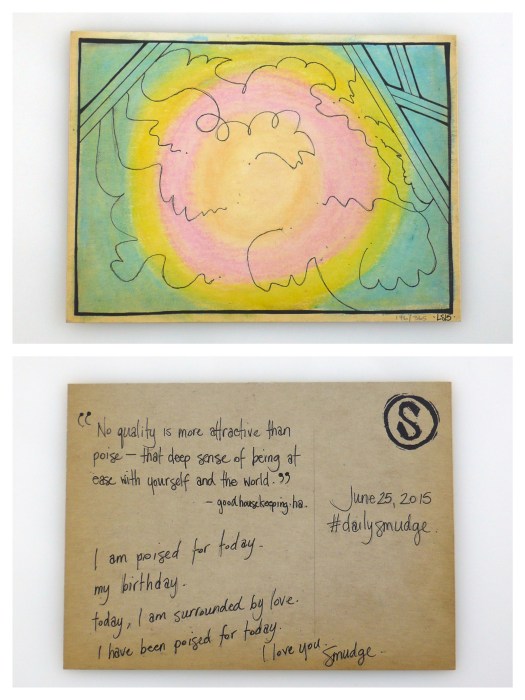 176/365 LSB.
"No quality is more attractive than
poise – that deep sense of being at
ease with yourself and the world."
– goodhousekeeping.ha.
I am poised for today.
my birthday.
today, I am surrounded by love.
I have been poised for today.
I love you.
Smudge.
S
June 25, 2015
#dailysmudge.